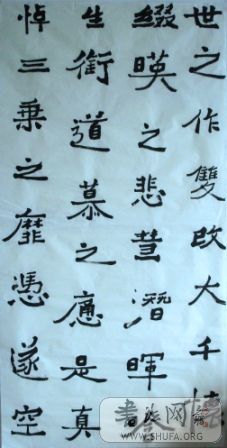 世之作雙改大千懷
綴暎之悲慧潛暉
生銜道慕之應是真
悼三乘之靡憑遂空
WWW.SHUFA.ORG